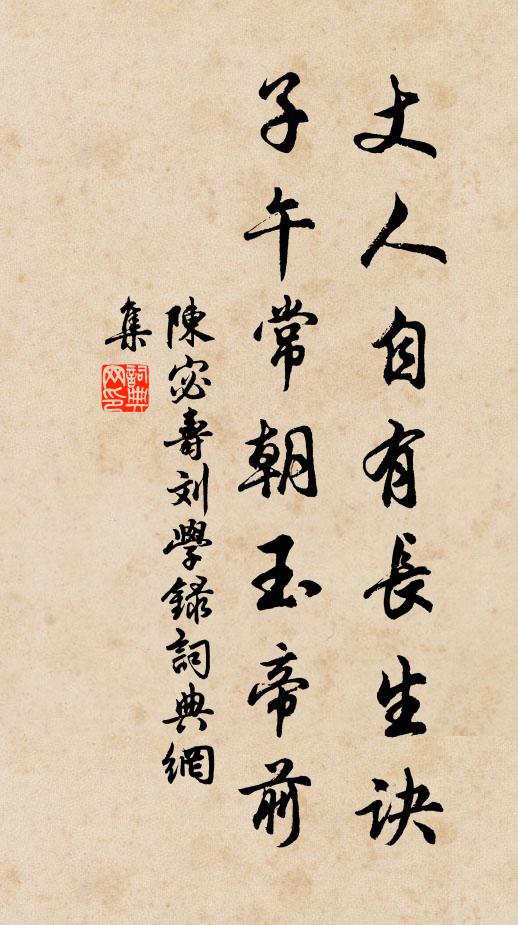 丈人自有長生訣
子午常朝玉帝前
陳宓壽刘學録詞典網
集
詞典網印